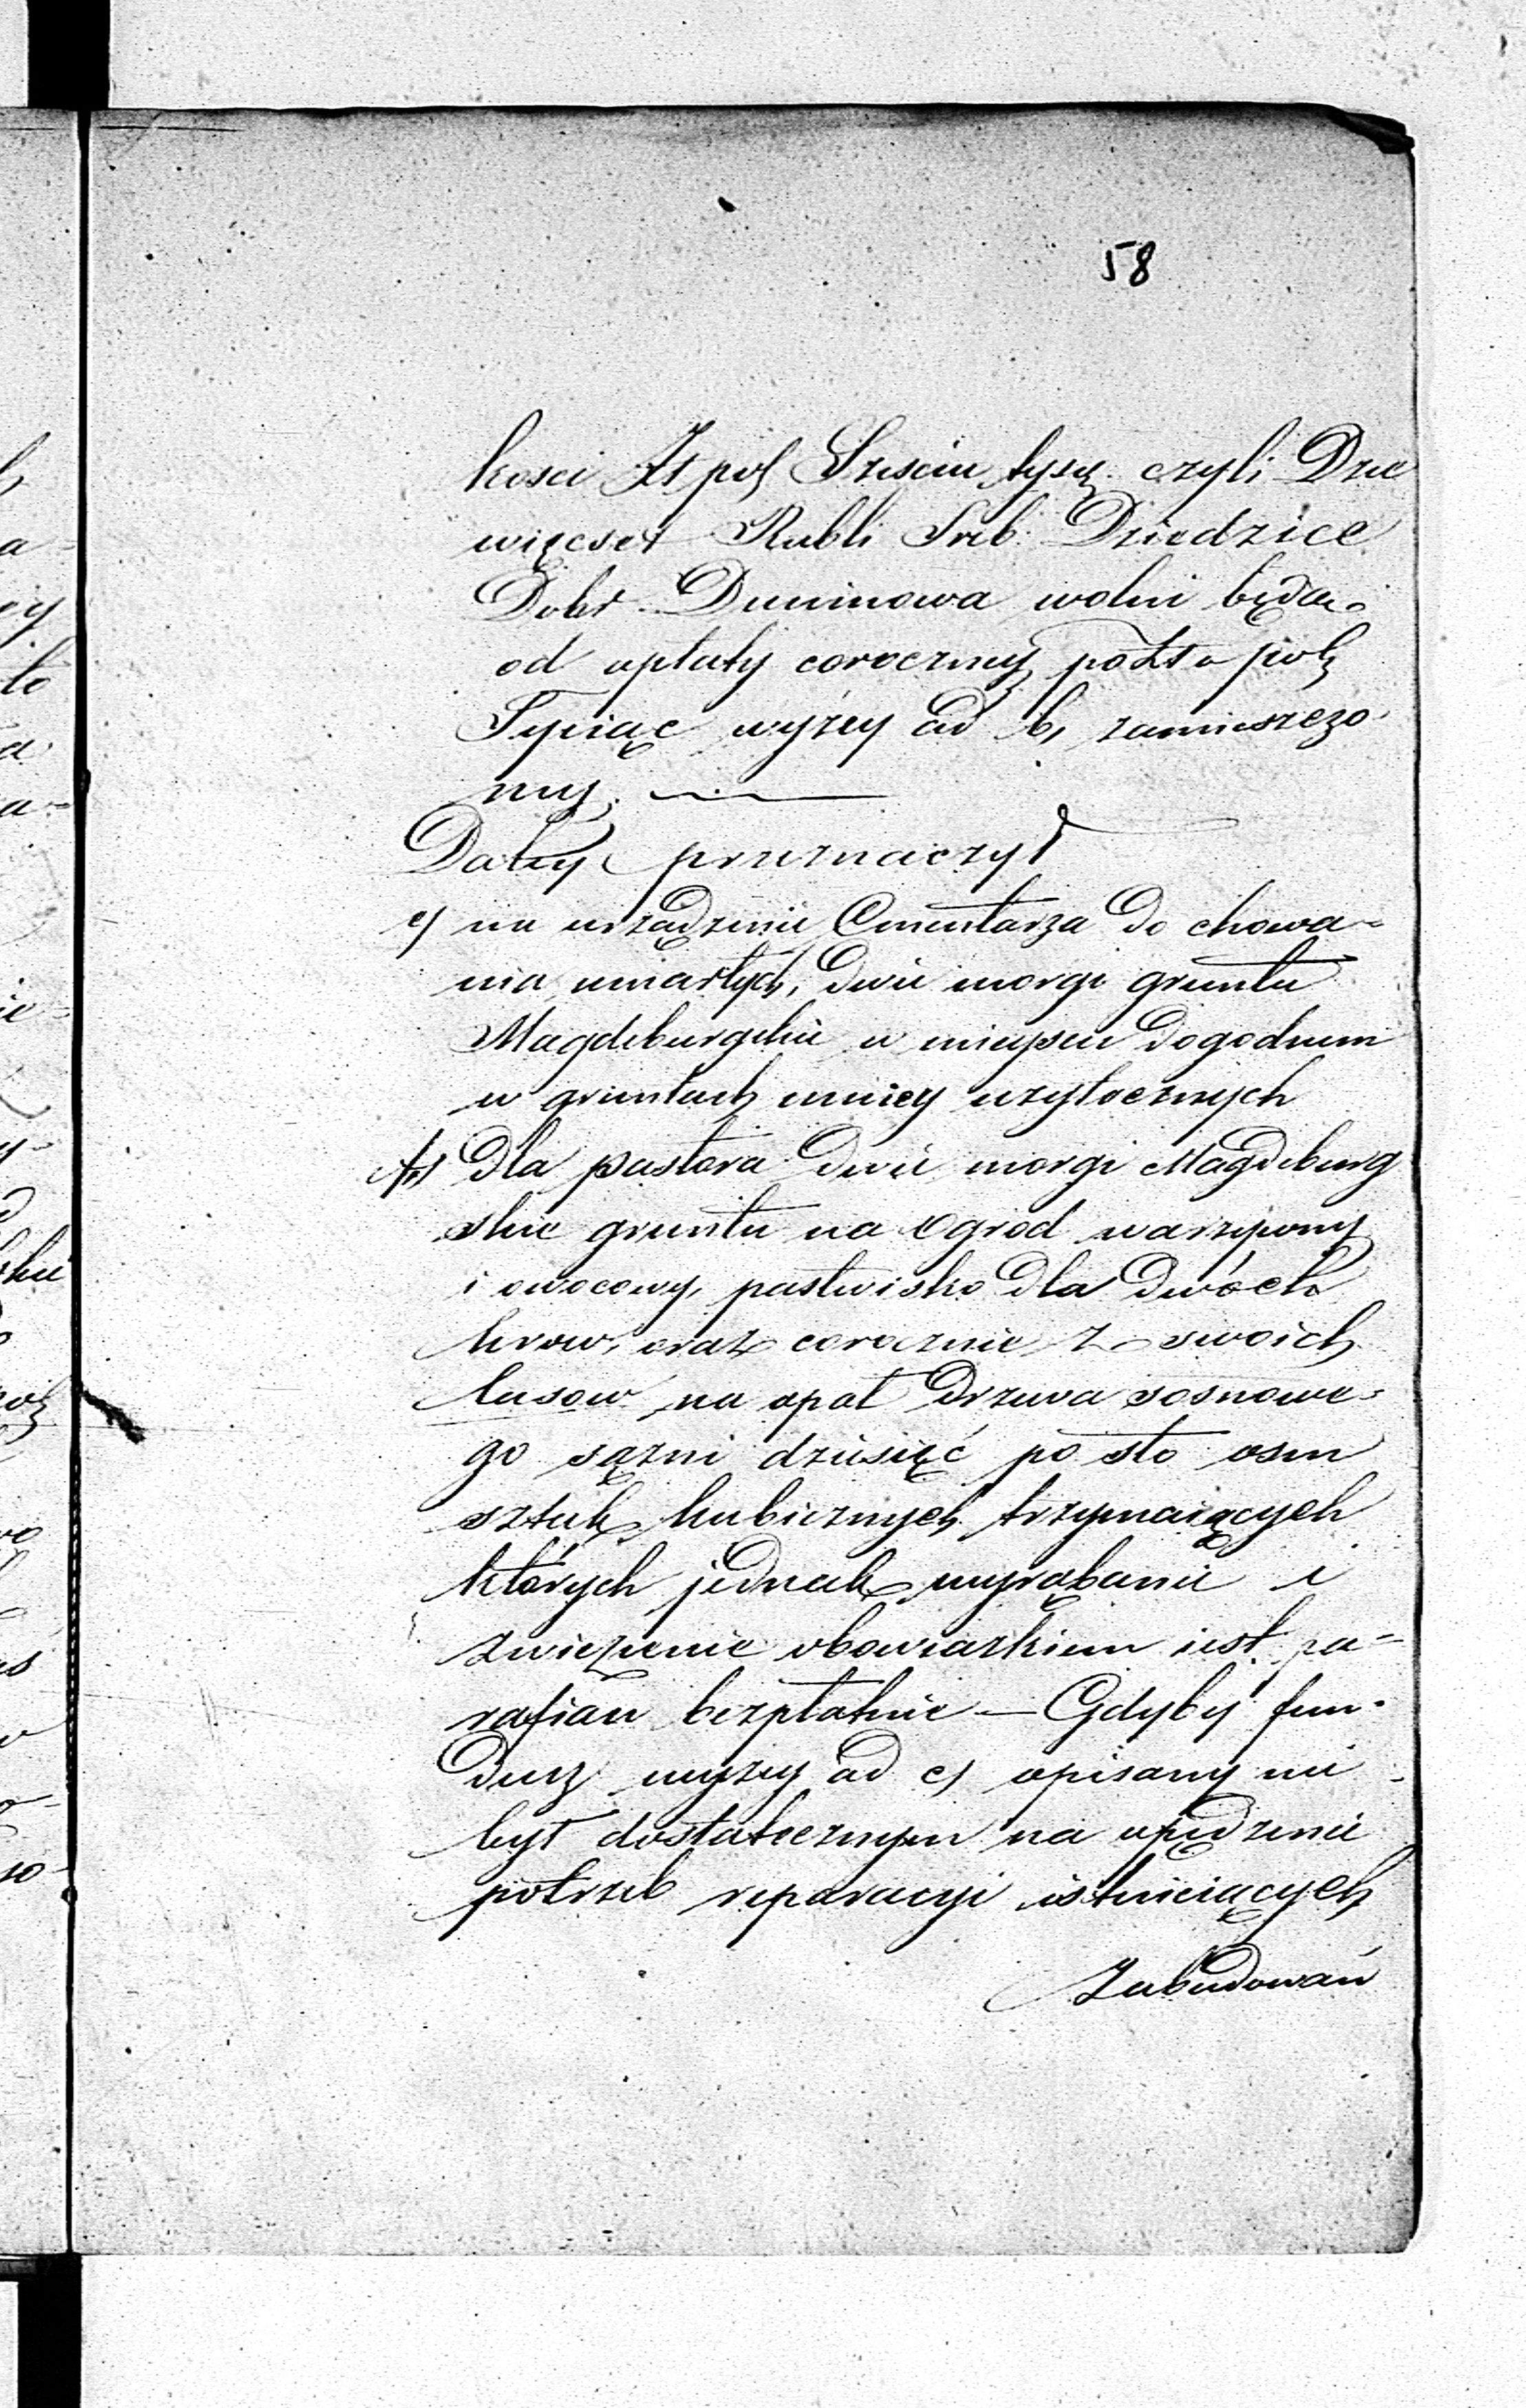 58
kosci Zł pol Sześciu tysię. czyli Dzie
więcset Rubli Sreb: Dziedzice
Dobr Duninowa wolni będą
od opłaty coroczney po Zł pols
Tysiąc wyżey ad b, zamieszczo
ney.
Daley przeznaczył
e) na urządzenie Cmentarza do chowa-
nia umarłych, dwie morgi gruntu
Magdeburgskie w mieyscu dogodnem
w gruntach mniey uzytecznych
f) dla pastora dwie morgi Magdeburg
skie gruntu na Ogrod warzywny
i owocowy, pastwisko dla dwóch
krow, oraz corocznie z swoich
lasow na opał drzewa sosnowe-
go sązni dziesięć po sto osm
sztuk kubicznych trzymaiących
których jednak wyrąbanie i
zwiezienie obowiazkiem iest pa-
rafian bezpłatnie — Gdyby fun-
dusz wyzey ad c) opisany nie
był dostatecznym na opędzenie
potrzeb reparacyi istnieiących
Zabudowań